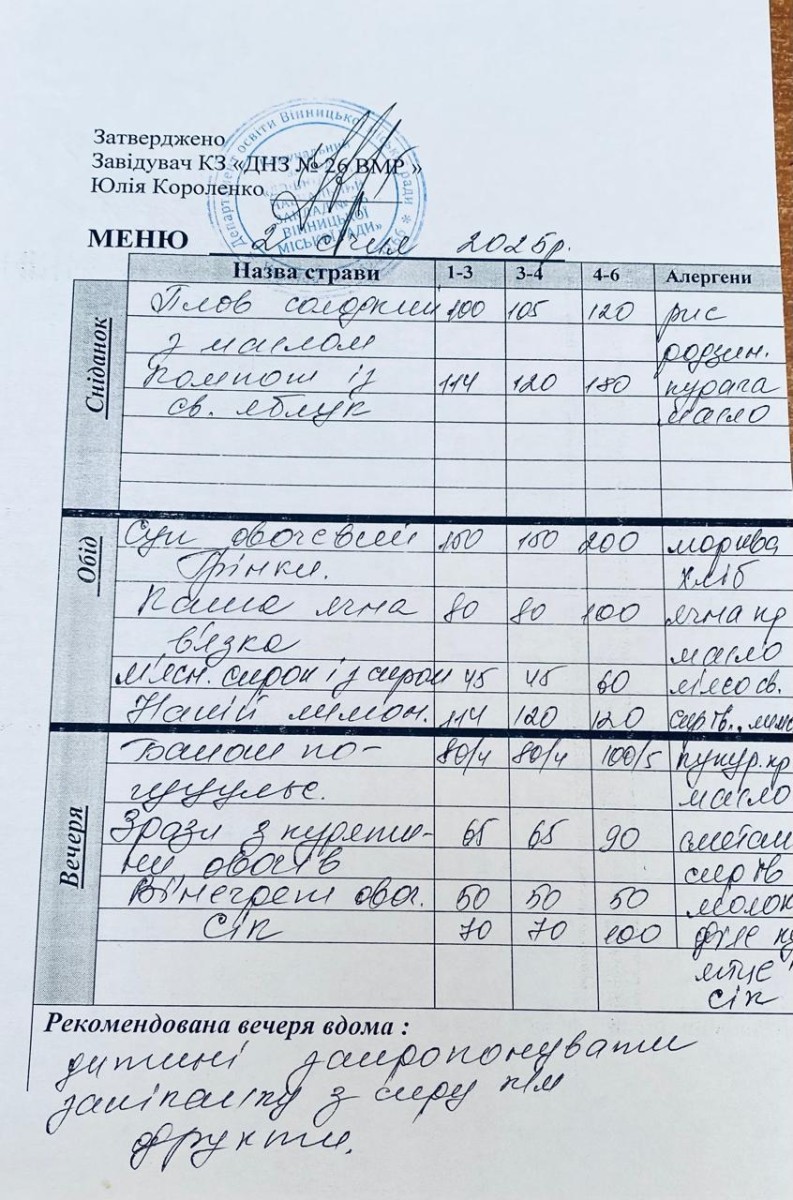 Затверджено
Завідувач КЗ «ДНЗ № 26 ВМР »
Юлія Короленко
Департамент освіти Вінницької міської ради
ВІННИЦЬКОЇ
МІСЬКОЇ РАДИ»
МЕНЮ 2 січня 2025р.
Назва страви 1-3 3-4 4-6 Алергени
Сніданок
Плов солодкий 100 105 120 рис
з маслом родзин.
Компот із 114 120 180 курага
св. яблук масло
Обід
Суп овочевий 150 150 200 морква
Грінки. хліб
Каша ячна 80 80 100 ячна кр
в'язка масло
м'ясн. сирок із сиром 45 45 60 м'ясо св.
Напій лимон. 114 120 120 сир тв., лимо
Вечеря
Банош по- 80/4 80/4 100/5 кукур. кр
гуцульс. масло
Зрази з куряти- 65 65 90 сметан
ни, овочів сир тв
Вінегрет овоч. 50 50 50 молок
Сік 70 70 100 філе ку
яйце
сік
Рекомендована вечеря вдома :
дитині запропонувати
запіканку з сиру
фрукти.